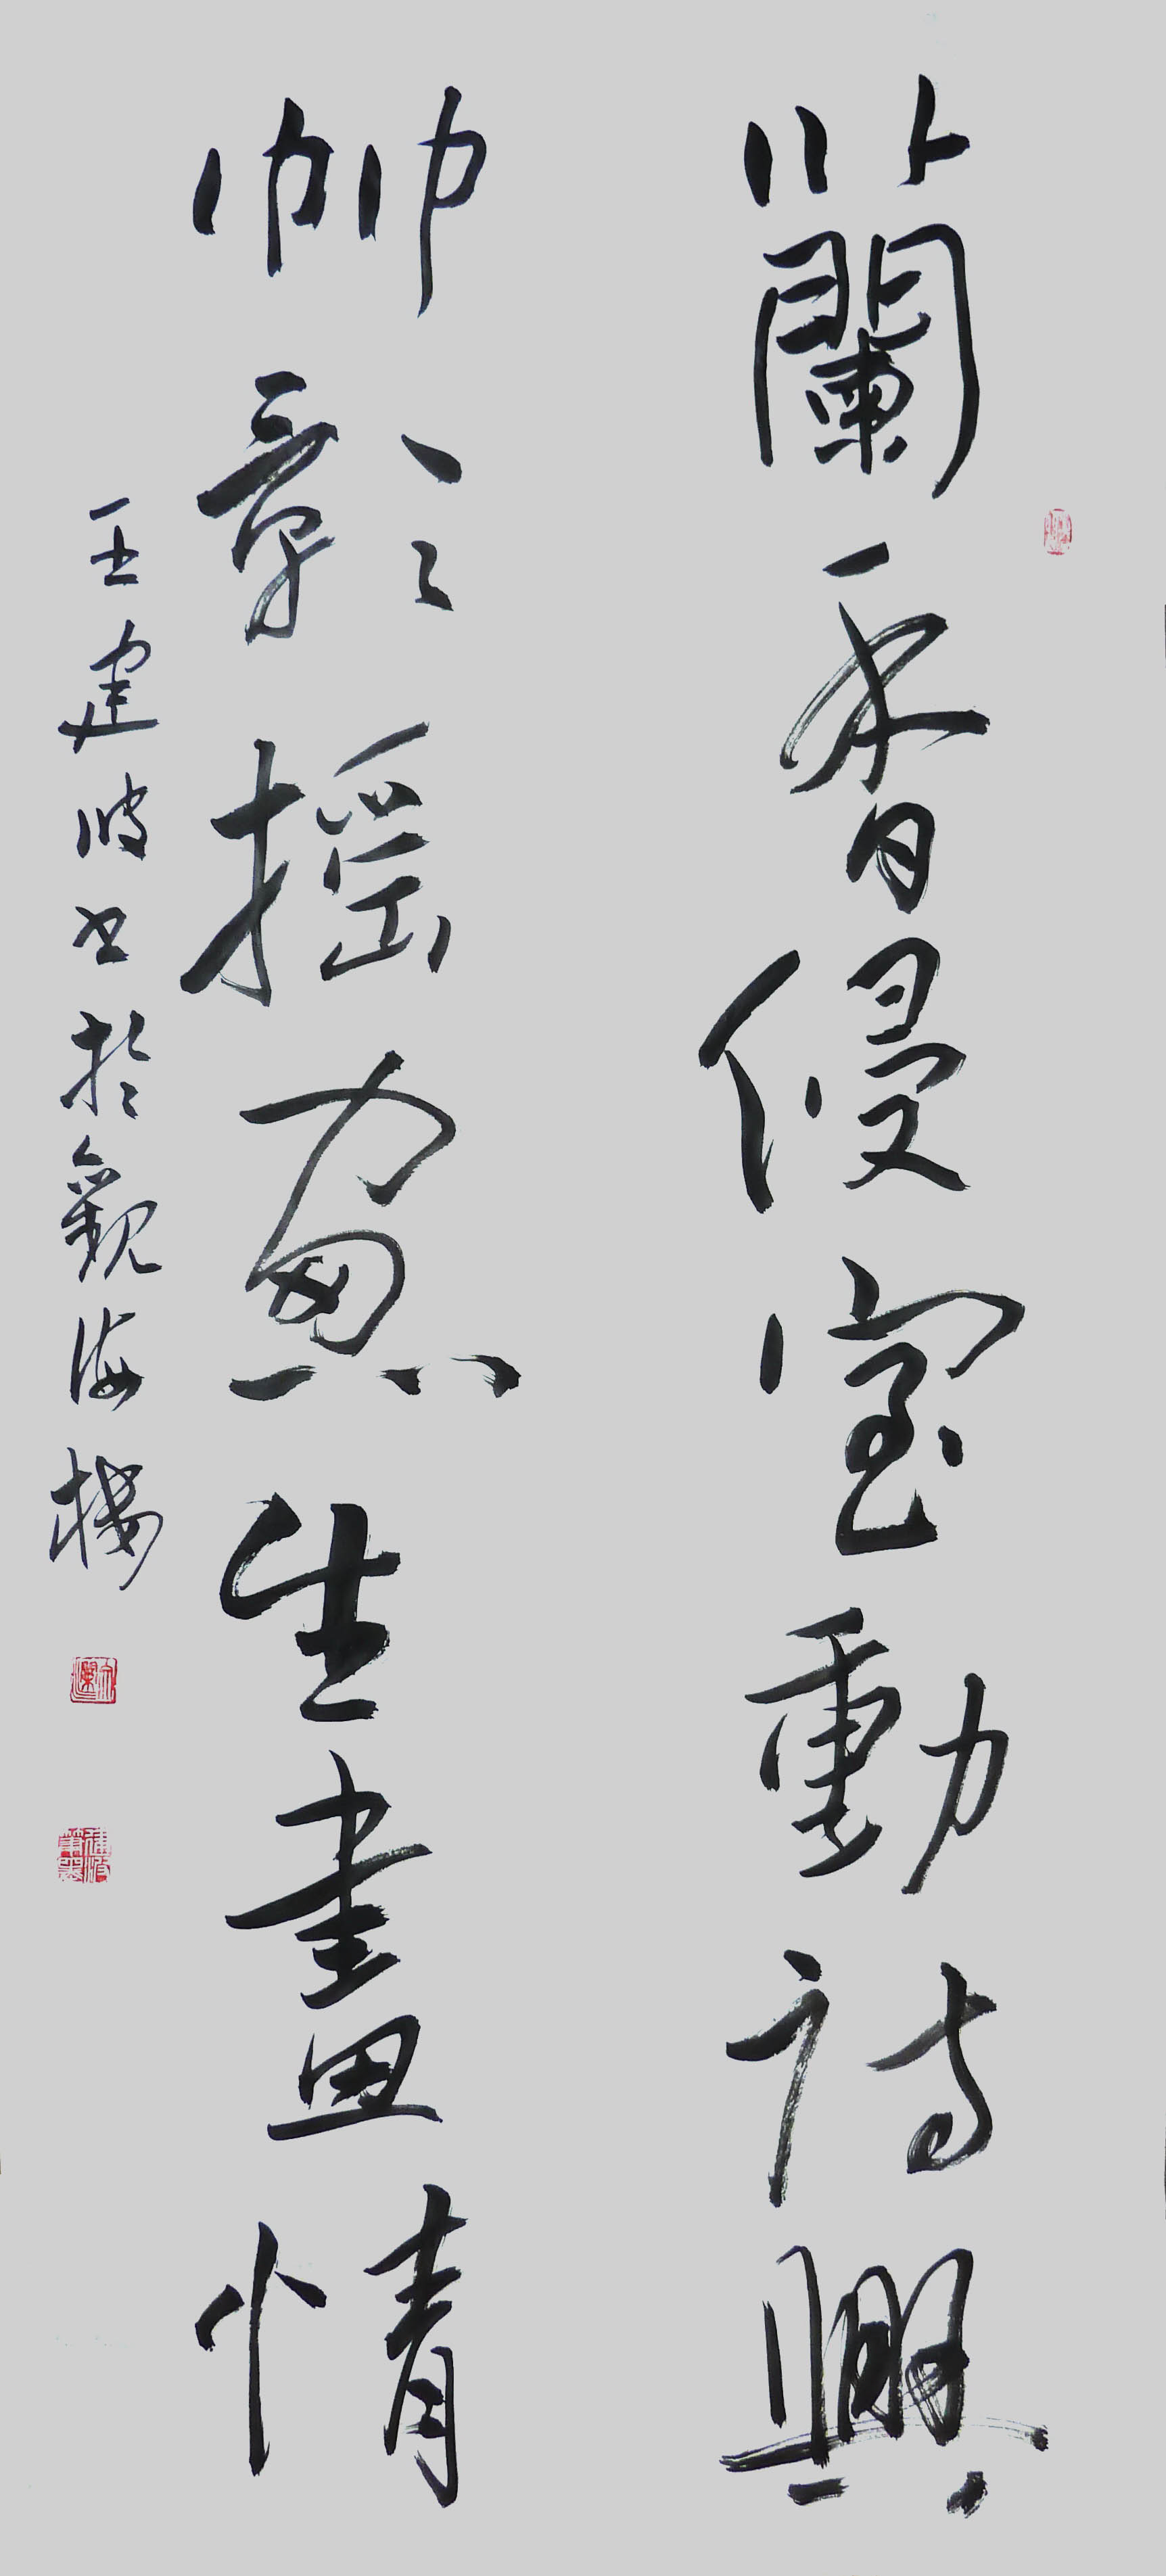 蘭香侵室動詩興
竹影搖窗生畫情
王建波書於觀海樓